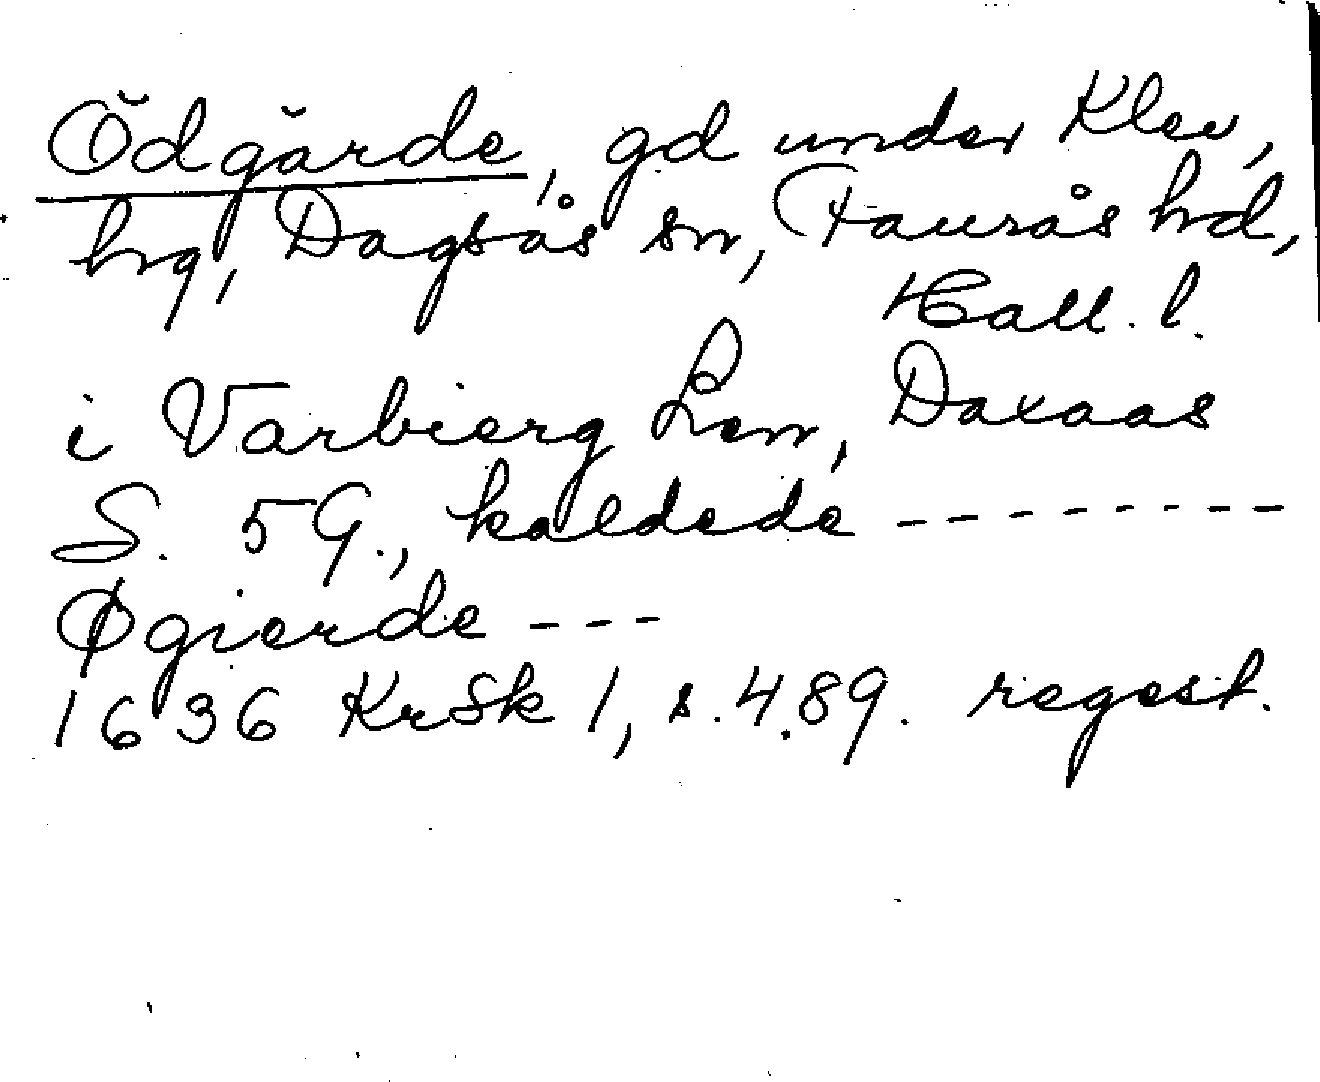 Ödgärde, gd under Klev,
hrg, Dagsås sn, Faurås hd,
Hall. l.
i Varbierg Len, Daxaas
S. 5 G., kaldede ---------
Øgierde ---
1636 KrSk 1, s. 489. regest.